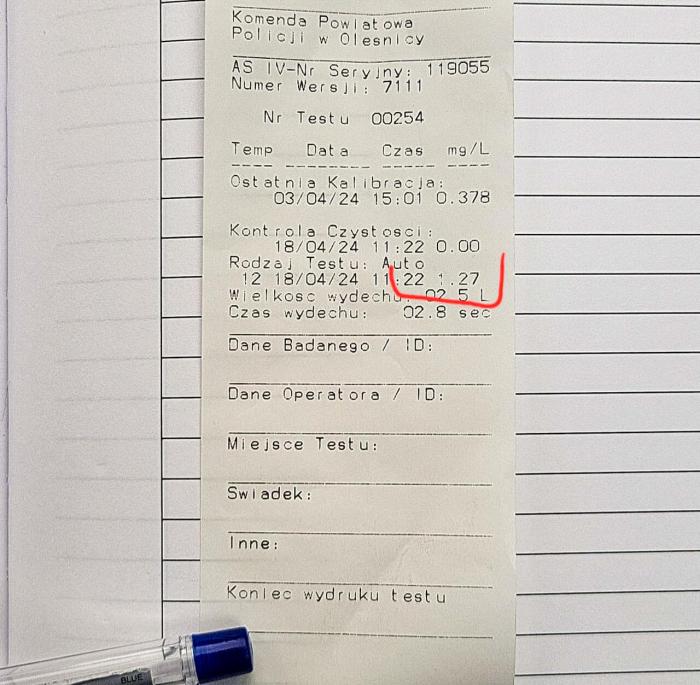 Komenda Powiatowa
Policji w Olesnicy
AS IV-Nr Seryjny: 119055
Numer Wersji: 7111
Nr Testu 00254
Temp Data Czas mg/L
---- -------- ----- ----
Ostatnia Kalibracja:
03/04/24 15:01 0.378
Kontrola Czystosci:
18/04/24 11:22 0.00
Rodzaj Testu: Auto
12 18/04/24 11:22 1.27
Wielkosc wydechu: 02.5 L
Czas wydechu: 02.8 sec
Dane Badanego / ID:
Dane Operatora / ID:
Miejsce Testu:
Swiadek:
Inne:
Koniec wydruku testu
BLUE